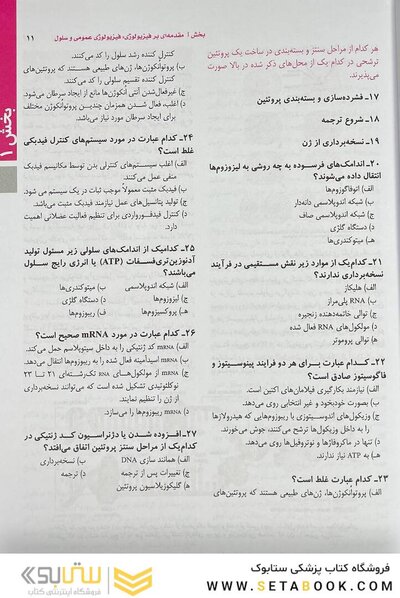 بخش ۱ مقدمه‌ای بر فیزیولوژی، فیزیولوژی عمومی و سلول ۱۱
هر کدام از مراحل سنتز و بسته‌بندی در ساخت یک پروتئین
ترشحی در کدام یک از محل‌های ذکر شده در بالا صورت
می‌پذیرند.
۱۷ــ فشرده‌سازی و بسته‌بندی پروتئین
۱۸ــ شروع ترجمه
۱۹ــ نسخه‌برداری از ژن
۲۰ــ اندامک‌های فرسوده به چه روشی به لیزوزوم‌ها
انتقال داده می‌شوند؟
الف) اتوفاگوزوم‌ها
ب) شبکه اندوپلاسمی دانه‌دار
ج) شبکه اندوپلاسمی صاف
د) دستگاه گلژی
هـ) میتوکندری‌ها
۲۱ــ کدام‌یک از موارد زیر نقش مستقیمی در فرآیند
نسخه‌برداری ندارند؟
الف) هلیکاز
ب) RNA پلی‌مراز
ج) توالی خاتمه‌دهنده زنجیره
د) مولکول‌های RNA فعال شده
هـ) توالی پروموتر
۲۲ــ کدام عبارت برای هر دو فرایند پینوسیتوز و
فاگوسیتوز صادق است؟
الف) نیازمند بکارگیری فیلامان‌های اکتین است.
ب) بصورت خودبخود و غیر انتخابی روی می‌دهد.
ج) وزیکول‌های اندوسیتوزی با ریبوزوم‌هایی که هیدرولازها
را به داخل وزیکول‌ها ترشح می‌کنند، جوش می‌خورند.
د) تنها در ماکروفاژها و نوتروفیل‌ها روی می‌دهد.
هـ) به ATP نیاز ندارند.
۲۳ــ کدام عبارت غلط است؟
الف) پروتوآنکوژن‌ها، ژن‌های طبیعی هستند که پروتئین‌های
کنترل کننده رشد سلول را کد می‌کنند.
ب) پروتوانکوژن‌ها، ژن‌های طبیعی هستند که پروتئین‌های
کنترل کننده تقسیم سلولی را کد می‌کنند.
ج) غیرفعال‌شدن آنتی آنکوژن‌ها مانع از ایجاد سرطان می‌شود.
د) اغلب، فعال شدن همزمان چندین پروتوانکوژن مختلف
برای ایجاد سرطان مورد نیاز می‌باشد.
۲۴ــ کدام عبارت در مورد سیستم‌های کنترل فیدبکی
غلط است؟
الف) اغلب سیستم‌های کنترلی بدن توسط مکانیسم فیدبک
منفی عمل می‌کنند.
ب) فیدبک مثبت معمولاً موجب ثبات در یک سیستم می شود.
ج) تولید پتانسیل‌های عمل نیازمند فیدبک مثبت می‌باشد.
د) کنترل فیدفورواردی برای تنظیم فعالیت عضلانی اهمیت
دارد.
۲۵ــ کدامیک از اندامک‌های سلولی زیر مسئول تولید
آدنوزین‌تری‌فسفات (ATP) یا انرژی رایج سلول
می‌باشند؟
الف) شبکه اندوپلاسمی ب) میتوکندری‌ها
ج) لیزوزوم‌ها د) دستگاه گلژی
هـ) پروکسیزوم‌ها ف) ریبوزوم‌ها
۲۶ــ کدام عبارت در مورد mRNA صحیح است؟
الف) mRNA کد ژنتیکی را به داخل سیتوپلاسم حمل می‌کند.
ب) mRNA اسیدآمینه فعال شده را به ریبوزوم‌ها انتقال می‌دهد.
ج) mRNA از مولکول‌های RNA تک‌رشته‌ای ۲۱ تا ۲۳
نوکلئوتیدی تشکیل شده است که می‌توانند نسخه‌برداری
از ژن را تنظیم نمایند.
د) mRNA ریبوزوم‌ها را می‌سازد.
۲۷ــ افزوده شدن یا دژنراسیون کد ژنتیکی در
کدام‌یک از مراحل سنتز پروتئین اتفاق می‌افتد؟
الف) همانند سازی DNA ب) نسخه‌برداری
ج) تغییرات پس از ترجمه د) ترجمه
هـ) گلیکوزیلاسیون پروتئین
بخش ۱
فروشگاه کتاب پزشکی ستابوک
WWW.SETABOOK.COM
ستابوک
فروشگاه اینترنتی کتاب